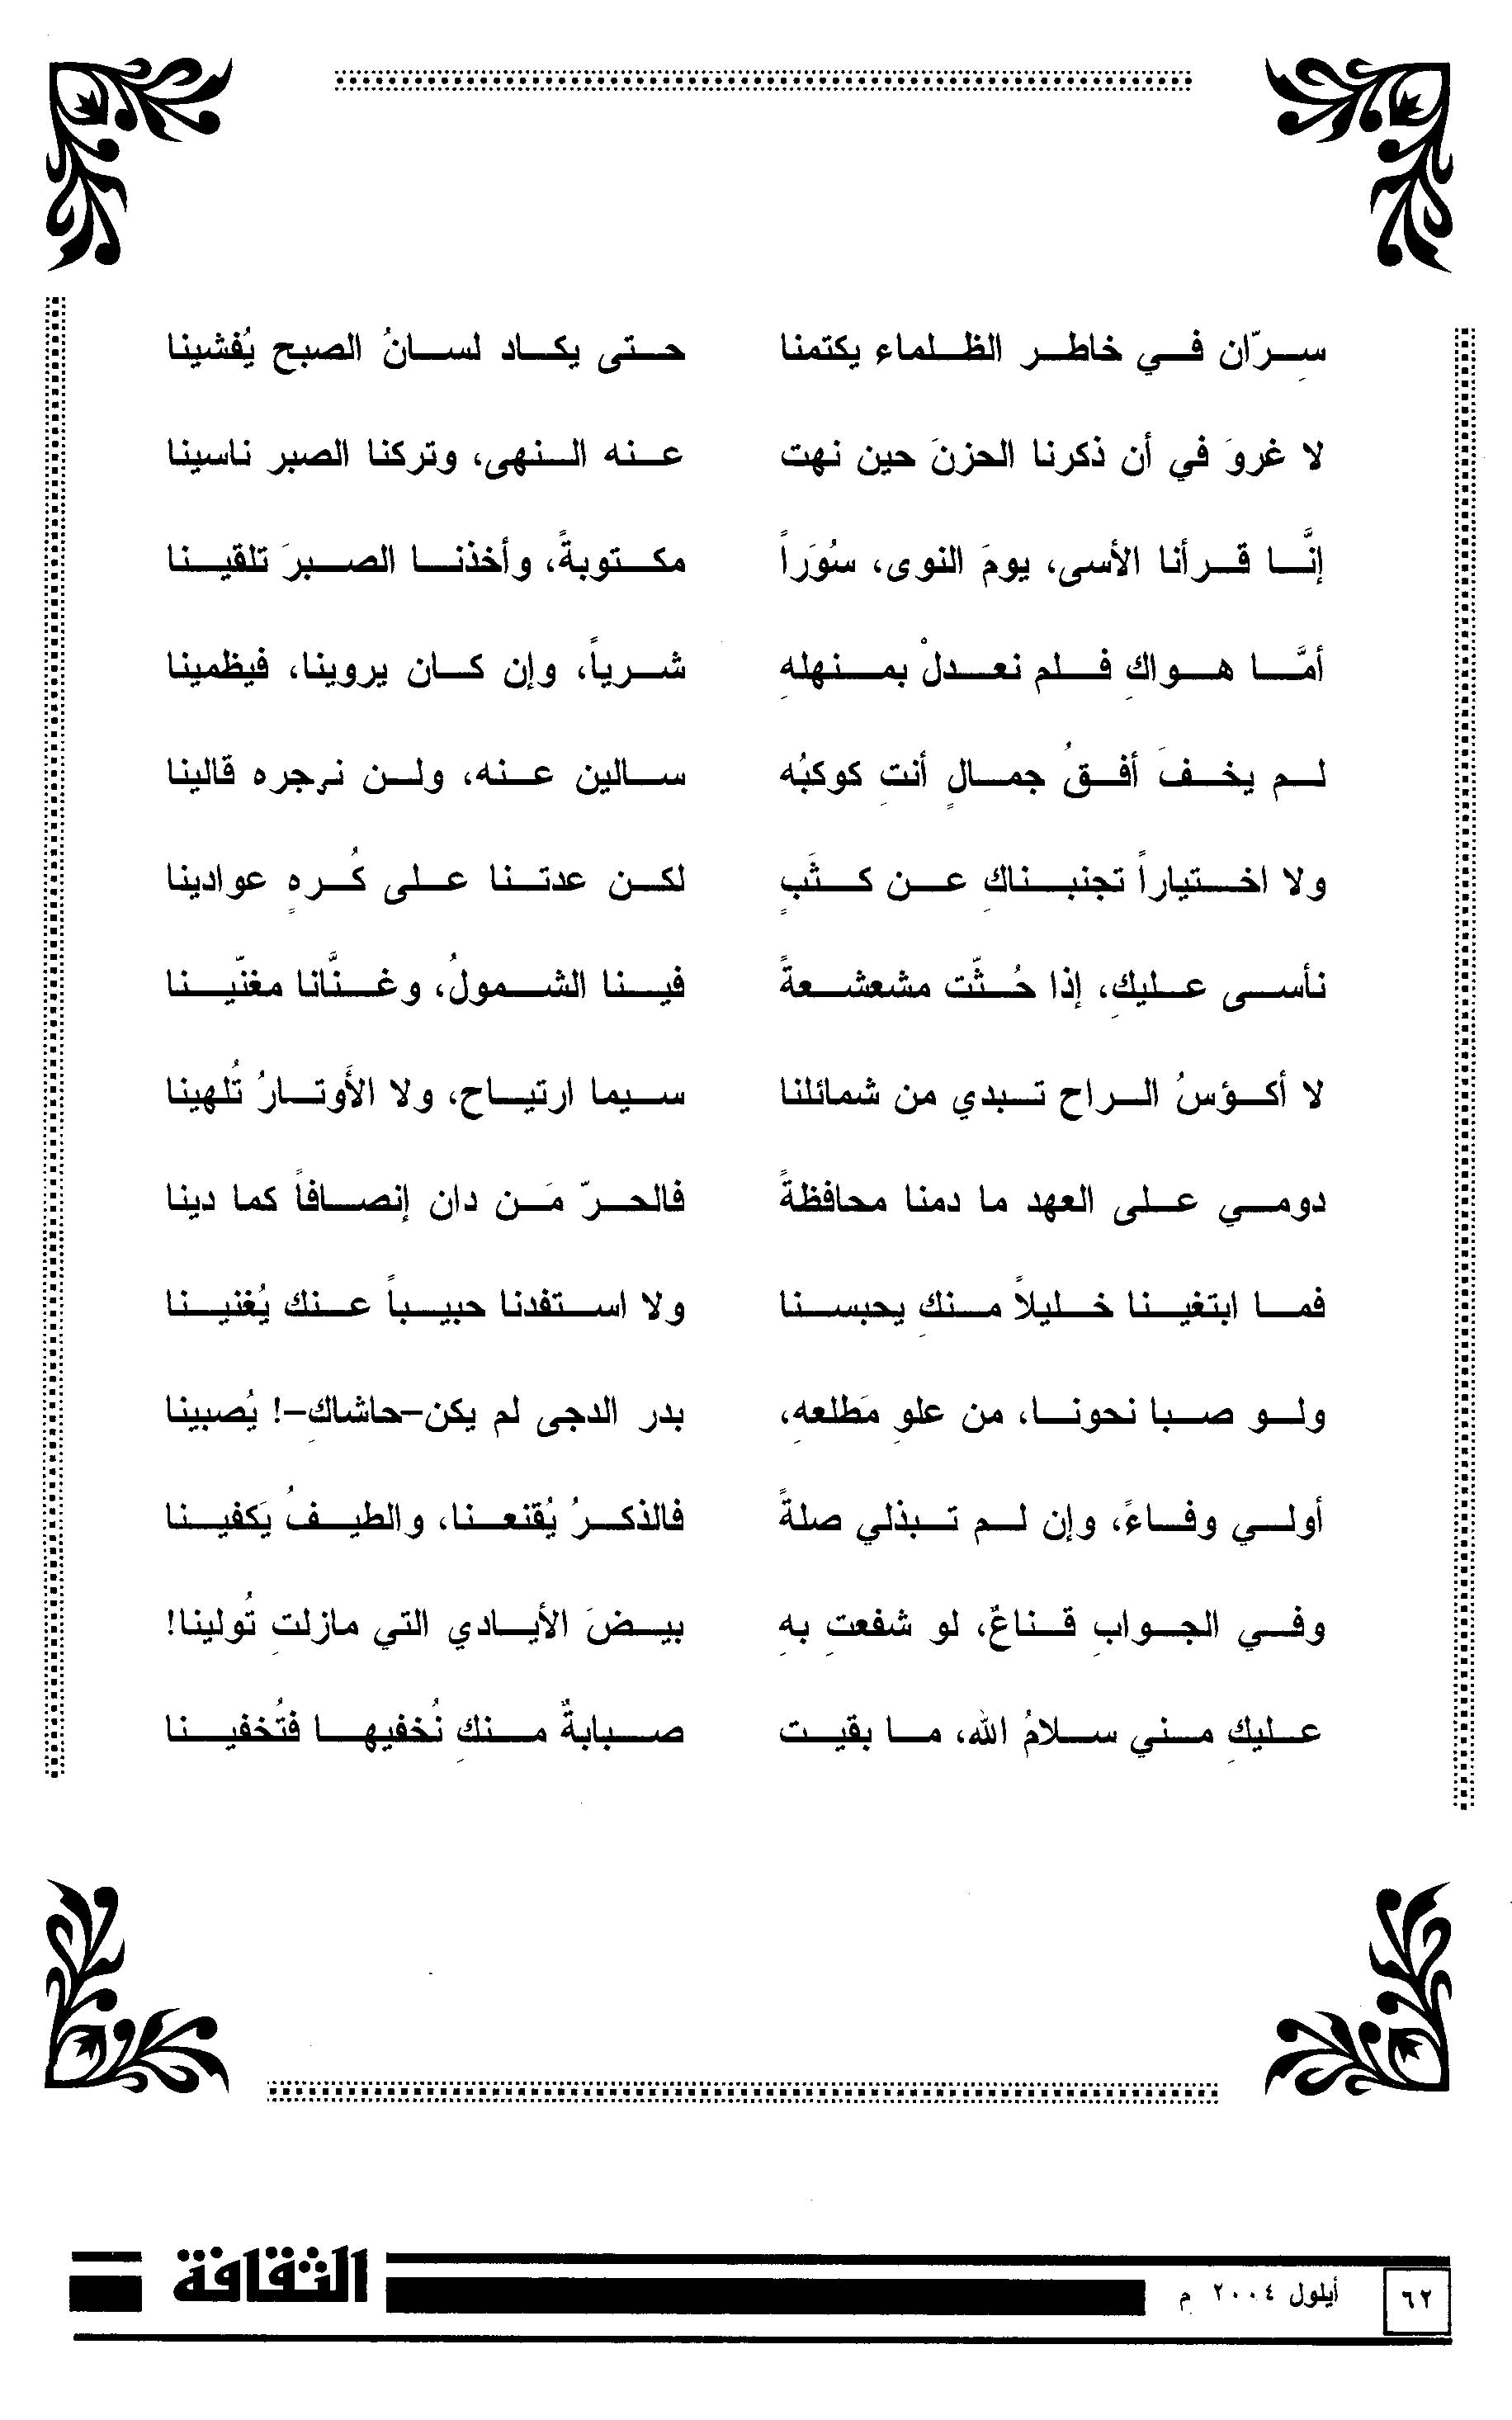 سرّان في خاطر الظلماء يكتمنا حتى يكاد لسانُ الصبح يُفشينا
لا غروَ في أن ذكرنا الحزنَ حين نهت عنه النهى، وتركنا الصبر ناسينا
إنَّا قرأنا الأسى، يومَ النوى، سُوَراً مكتوبةً، وأخذنا الصبرَ تلقينا
أمَّا هواكِ فلم نعدلْ بمنهلهِ شرباً، وإن كان يروينا، فيظمينا
لم يخفَ أفقُ جمالٍ أنتِ كوكبُه سالين عنه، ولن نهجره قالينا
ولا اختياراً تجنبناكِ عن كثَبٍ لكن عدتنا على كُرهٍ عوادينا
نأسى عليكِ، إذا حُثّت مشعشعةً فينا الشمولُ، وغنَّانا مغنّينا
لا أكؤسُ الراح تبدي من شمائلنا سيما ارتياح، ولا الأَوتارُ تُلهينا
دومي على العهد ما دمنا محافظةً فالحرّ مَن دان إنصافاً كما دينا
فما ابتغينا خليلاً منكِ يحبسنا ولا استفدنا حبيباً عنك يُغنينا
ولو صبا نحونا، من علوِ مَطلعهِ، بدر الدجى لم يكن-حاشاكِ-! يُصبينا
أولي وفاءً، وإن لم تبذلي صلةً فالذكرُ يُقنعنا، والطيفُ يَكفينا
وفي الجوابِ قناعٌ، لو شفعتِ بهِ بيضَ الأيادي التي مازلتِ تُولينا!
عليكِ مني سلامُ الله، ما بقيت صبابةٌ منكِ نُخفيها فتُخفينا
٦٢ أيلول ٢٠٠٤ م الثقافة